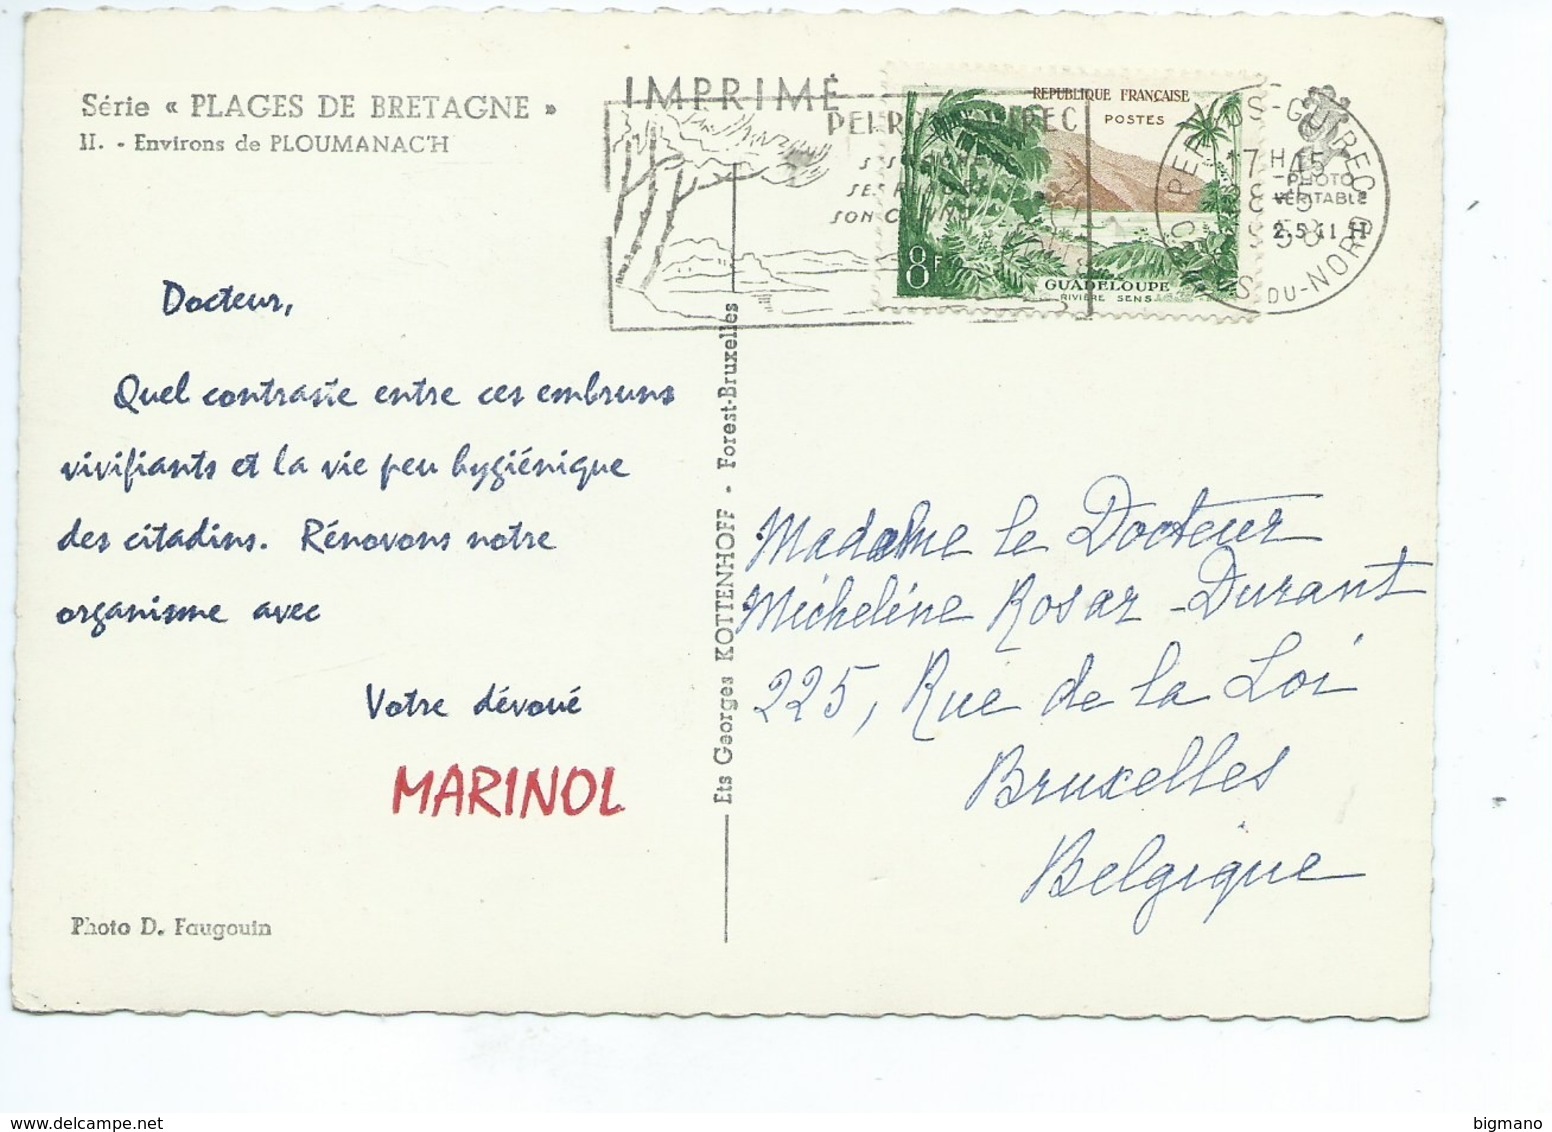 Série « PLAGES DE BRETAGNE »
II. - Environs de PLOUMANAC'H
IMPRIMÉ
REPUBLIQUE FRANÇAISE
POSTES
8F
GUADELOUPE
RIVIÈRE SENS
PERROS-GUIREC
17H45
1958
DU-NORD
PHOTO
VÉRITABLE
2.5.41 H
Docteur,
Quel contraste entre ces embruns
vivifiants et la vie peu hygiénique
des citadins. Rénovons notre
organisme avec
Votre dévoué
MARINOL
Photo D. Faugouin
Ets Georges KOTTENHOFF - Forest-Bruxelles
Madame le Docteur
Micheline Rosar-Durant
225, Rue de la Loi
Bruxelles
Belgique
www.delcampe.net
bigmano